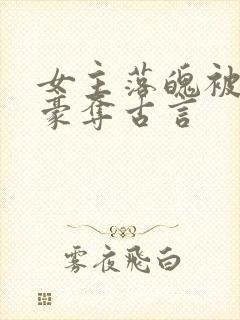 女主落魄被
豪夺古言
雾夜飞白